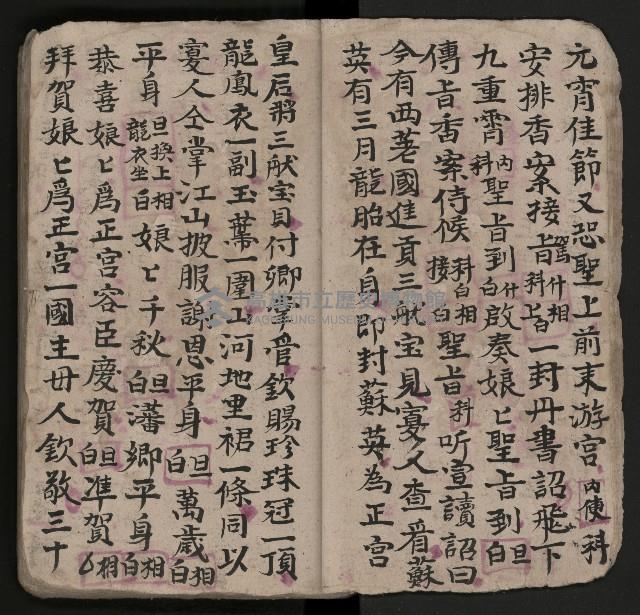 元宵佳節又恐聖上前来游宫内使科
安排香案接旨駕什相科上白一封丹書詔飛下
九重霄内科聖旨到什白啟奏娘匕聖旨到旦白
傳旨香案侍候科白相接白聖旨科听宣讀詔曰
今有西畨國進貢三献宝見寡人查看蘇
英有三月龍胎在身即封蘇英為正宫
皇后将三献宝貝付卿掌管欽賜珍珠冠一頂
龍鳳衣一副玉帶一圍山河地里裙一條同以
寡人仝掌江山披服謝恩平身旦白萬歲相白
平身旦換上相龍衣坐白娘匕千秋旦白潘卿平身相白
恭喜娘匕為正宫容臣慶賀旦白准賀相白
拜賀娘匕為正宫一國主毌人欽敬三十
高雄市立歷史博物館
KAOHSIUNG MUSEUM